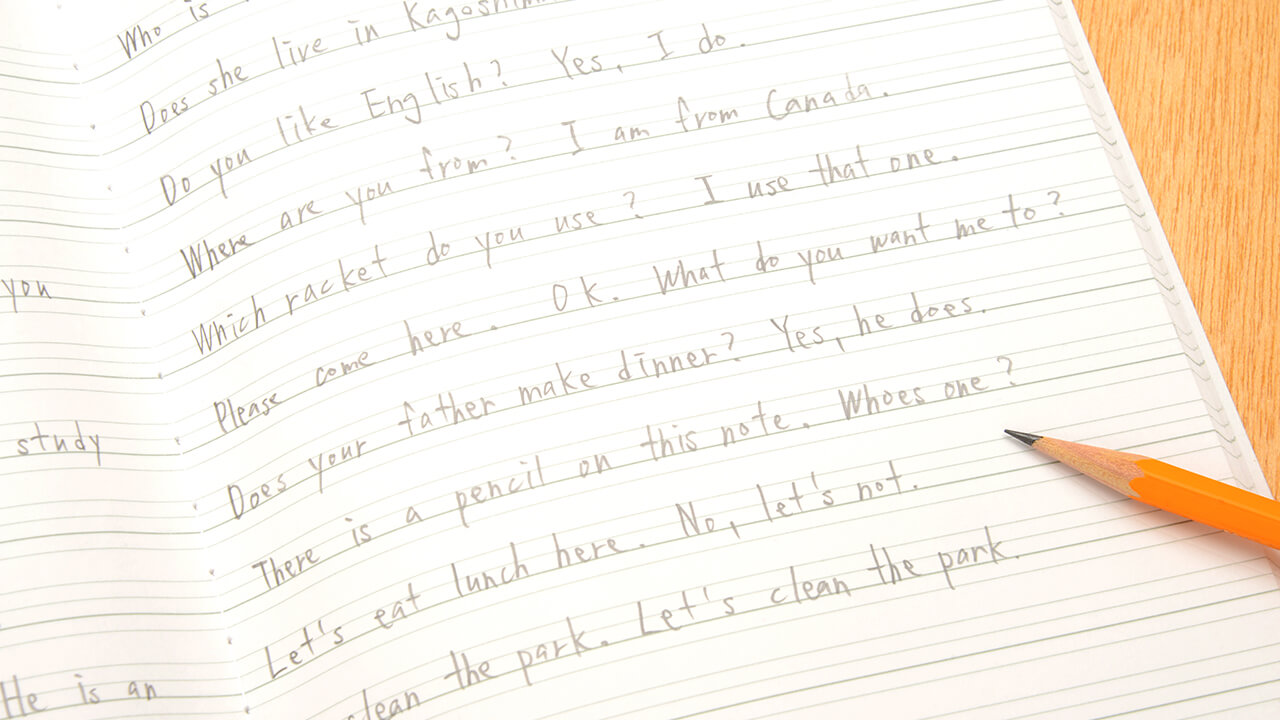 you
study
He is an
Who is
Does she live in
Do you like English? Yes, I do.
Where are you from? I am from Canada.
Which racket do you use? I use that one.
Please come here. Ok. What do you want me to?
Does your father make dinner? Yes, he does.
There is a pencil on this note. Whoes one?
Let's eat lunch here. No, let's not.
clean the park. Let's clean the park.